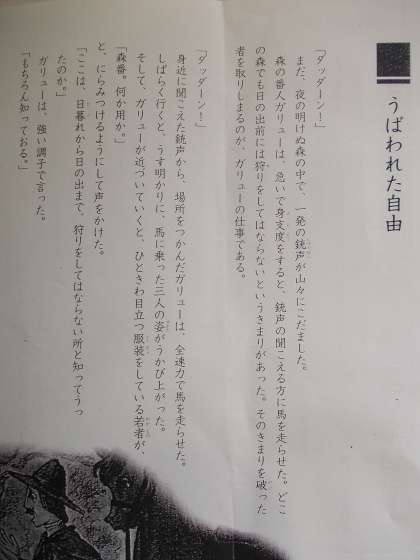 うばわれた自由
「ダッダーン！」
まだ、夜の明けぬ森の中で、一発の銃声が山々にこだました。
森の番人ガリューは、急いで身支度をすると、銃声の聞こえる方に馬を走らせた。どこ
の森でも日の出前には狩りをしてはならないというきまりがあった。そのきまりを破った
者を取りしまるのが、ガリューの仕事である。
「ダッダーン！」
身近に聞こえた銃声から、場所をつかんだガリューは、全速力で馬を走らせた。
しばらく行くと、うす明かりに、馬に乗った三人の姿がうかび上がった。
そして、ガリューが近づいていくと、ひときわ目立つ服装をしている若者が、
「森番。何か用か。」
と、にらみつけるようにして声をかけた。
「ここは、日暮れから日の出まで、狩りをしてはならない所と知ってうっ
たのか。」
ガリューは、強い調子で言った。
「もちろん知っておる。」